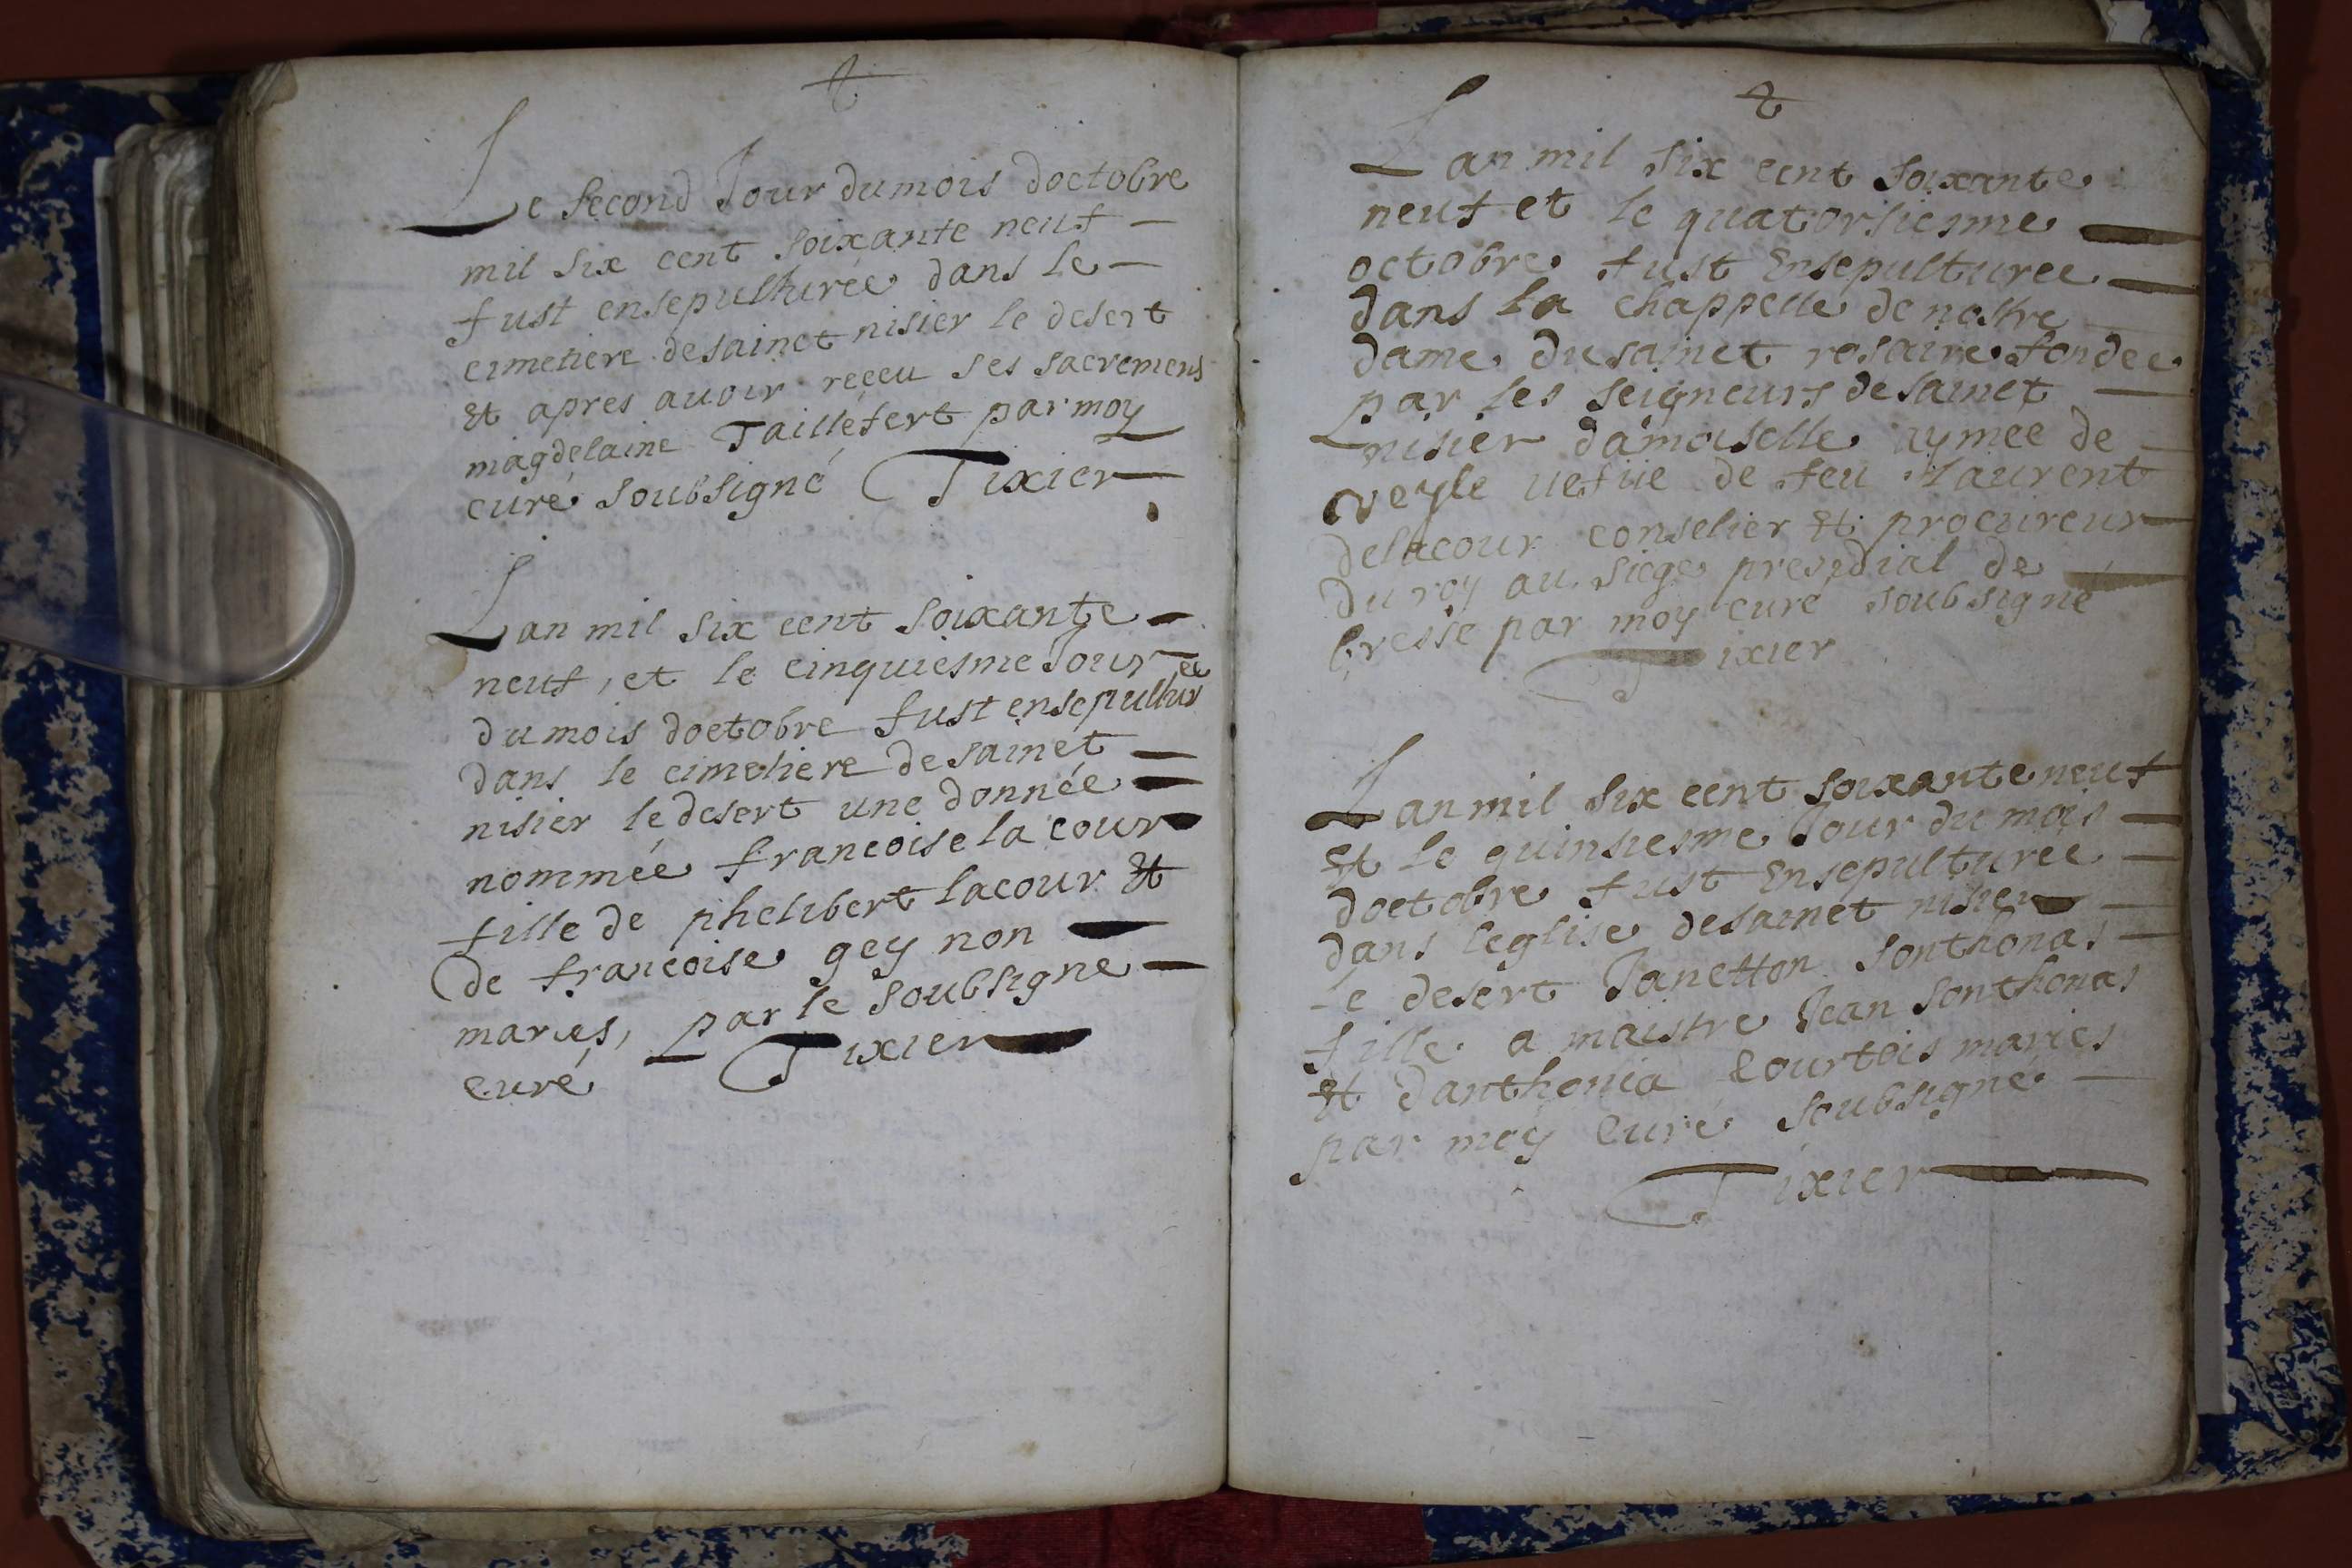 Le second Jour du mois doctobre
mil six cent soixante neuf
fust ensepulturée dans le
cimetiere de sainct nisier le desert
et apres auoir reçeu ses sacremens
magdelaine Taillefert par moy
curé soubsigné Tixier
Lan mil six cent soixante
neuf, et le cinquiesme Jour
du mois doctobre fust ensepulturée
dans le cimetiere de sainct
nisier le desert une donnée
nommée francoise la cour
fille de phelibert lacour et
de francoise gey non
maries, par le soubsigne
curé Tixier
Lan mil six cent soixante
neuf et le quatorsiesme
octobre fust Ensepulturee
dans la chappelle de nostre
dame du sainct rosaire fondee
par les seigneurs de sainct
nisier damoiselle aymee de
veyle uefue de feu laurent
delacour conselier et procureur
du roy au siege presidial de
bresse par moy curé soubsigné
Tixier
Lan mil six cent soixante neuf
et le quinsiesme Jour du mois
doctobre fust Ensepulturee
dans leglise de sainct nisier
le desert Janetton Sonthonas
fille a maistre Jean Sonthonas
et danthonia Courtois maries
par moy Curé soubsigné
Tixier